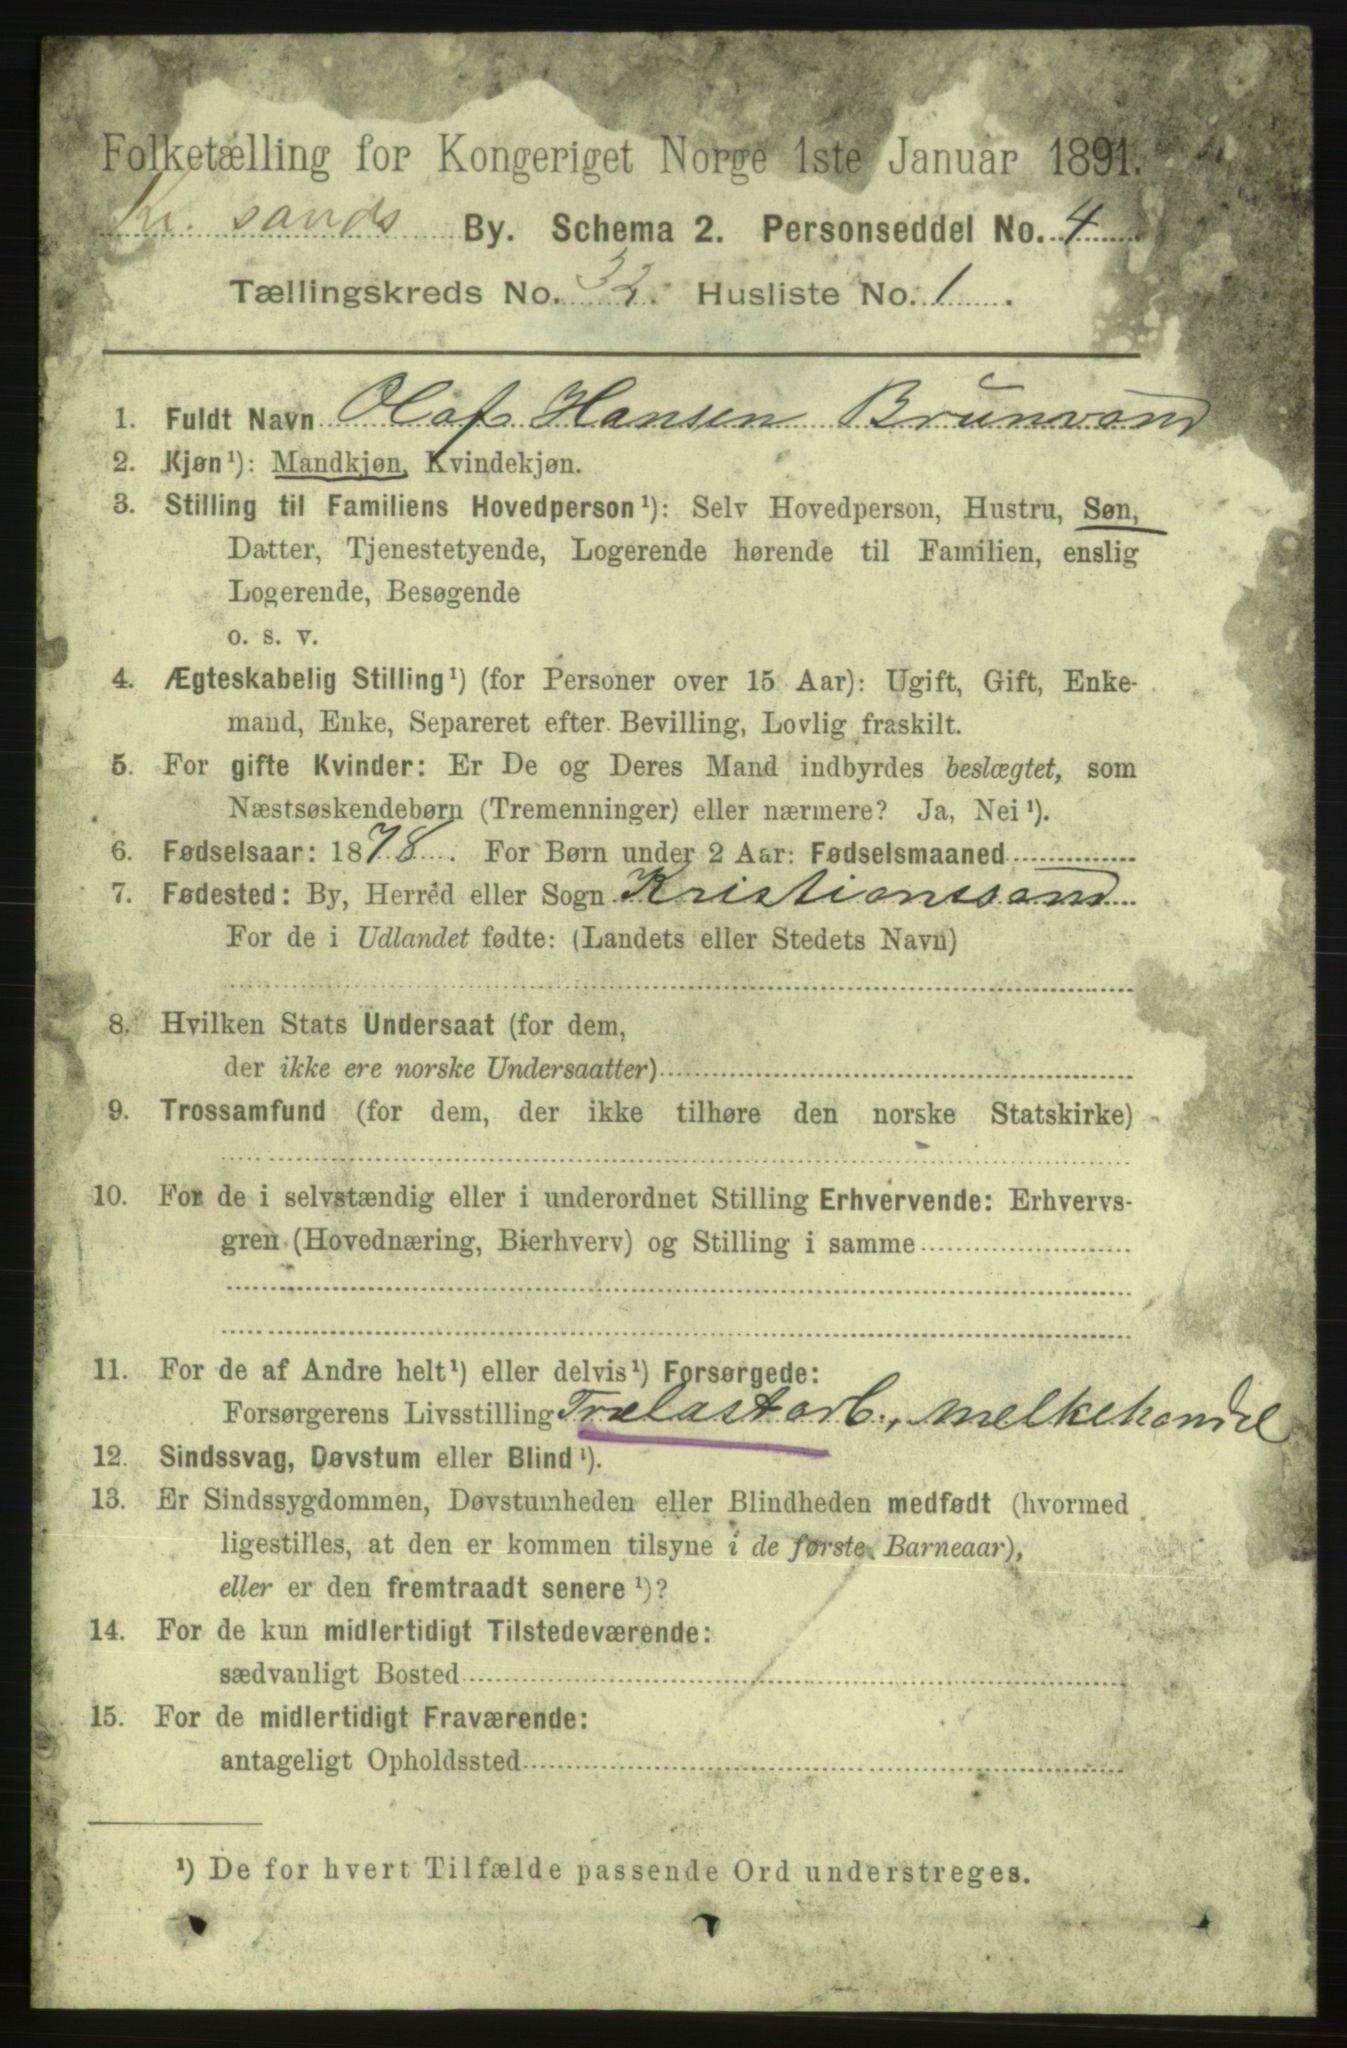 Folketælling for Kongeriget Norge 1ste Januar 1891.
Kr. sands By. Schema 2. Personseddel No. 4
Tællingskreds No. 32. Husliste No. 1.
1. Fuldt Navn Olaf Hansen Brunvand
2. Kjøn¹): Mandkjøn, Kvindekjøn.
3. Stilling til Familiens Hovedperson¹): Selv Hovedperson, Hustru, Søn,
Datter, Tjenestetyende, Logerende hørende til Familien, enslig
Logerende, Besøgende
o. s. v.
4. Ægteskabelig Stilling¹) (for Personer over 15 Aar): Ugift, Gift, Enke-
mand, Enke, Separeret efter Bevilling, Lovlig fraskilt.
5. For gifte Kvinder: Er De og Deres Mand indbyrdes beslægtet, som
Næstsøskendebørn (Tremenninger) eller nærmere? Ja, Nei¹).
6. Fødselsaar: 1878. For Børn under 2 Aar: Fødselsmaaned
7. Fødested: By, Herred eller Sogn Kristianssand
For de i Udlandet fødte: (Landets eller Stedets Navn)
8. Hvilken Stats Undersaat (for dem,
der ikke ere norske Undersaatter)
9. Trossamfund (for dem, der ikke tilhøre den norske Statskirke)
10. For de i selvstændig eller i underordnet Stilling Erhvervende: Erhvervs-
gren (Hovednæring, Bierhverv) og Stilling i samme
11. For de af Andre helt¹) eller delvis¹) Forsørgede:
Forsørgerens Livsstilling Trælastarb., melkehandel
12. Sindssvag, Døvstum eller Blind¹).
13. Er Sindssygdommen, Døvstumheden eller Blindheden medfødt (hvormed
ligestilles, at den er kommen tilsyne i de første Barneaar),
eller er den fremtraadt senere¹)?
14. For de kun midlertidigt Tilstedeværende:
sædvanligt Bosted
15. For de midlertidigt Fraværende:
antageligt Opholdssted
¹) De for hvert Tilfælde passende Ord understreges.